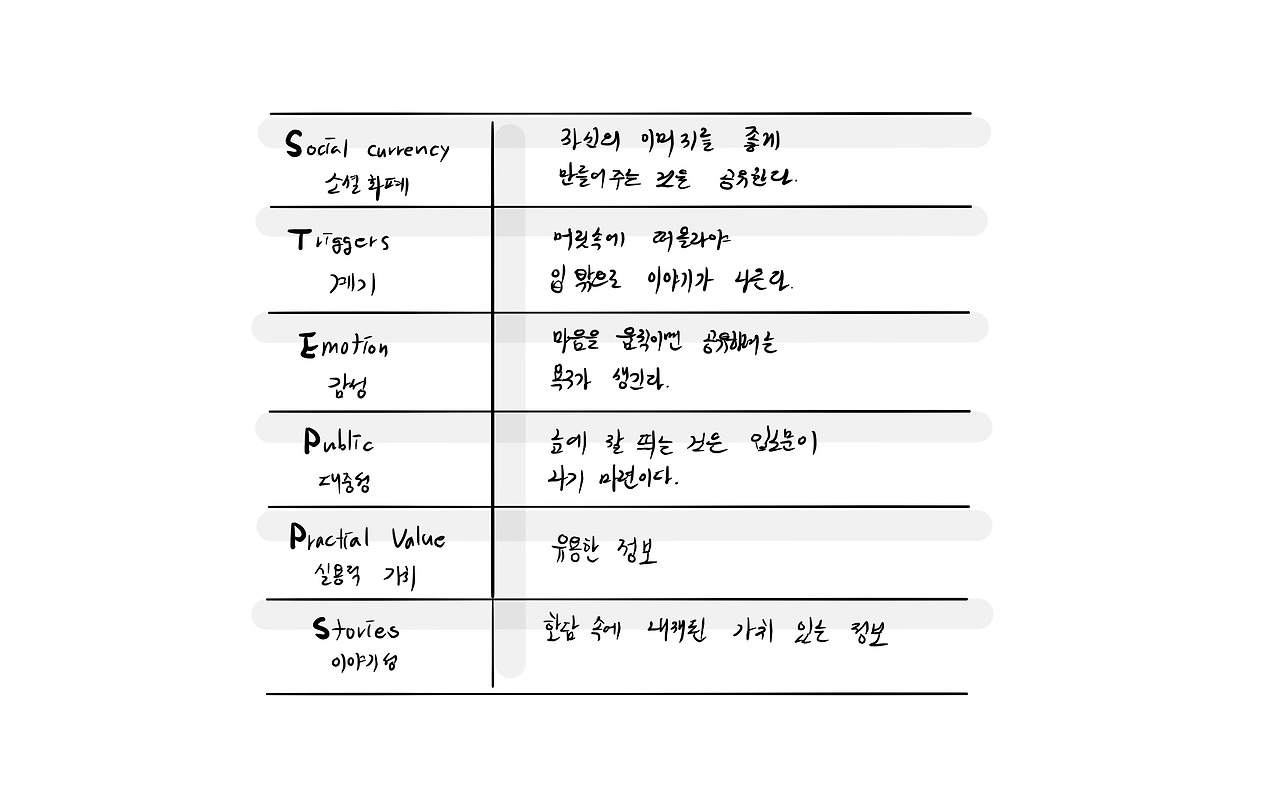 Social currency
소셜 화폐
자신의 이미지를 좋게
만들어 주는 것을 공유한다.
Triggers
계기
머릿속에 떠올라야
입 밖으로 이야기가 나온다.
Emotion
감성
마음을 움직이면 공유하려는
욕구가 생긴다.
Public
대중성
눈에 잘 띄는 것은 입소문이
나기 마련이다.
Practial Value
실용적 가치
유용한 정보
Stories
이야기성
환담 속에 내재된 가치 있는 정보